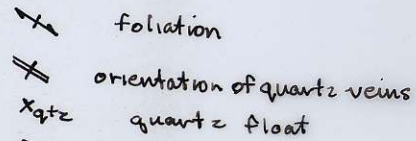 foliation
orientation of quartz veins
xqtz quartz float